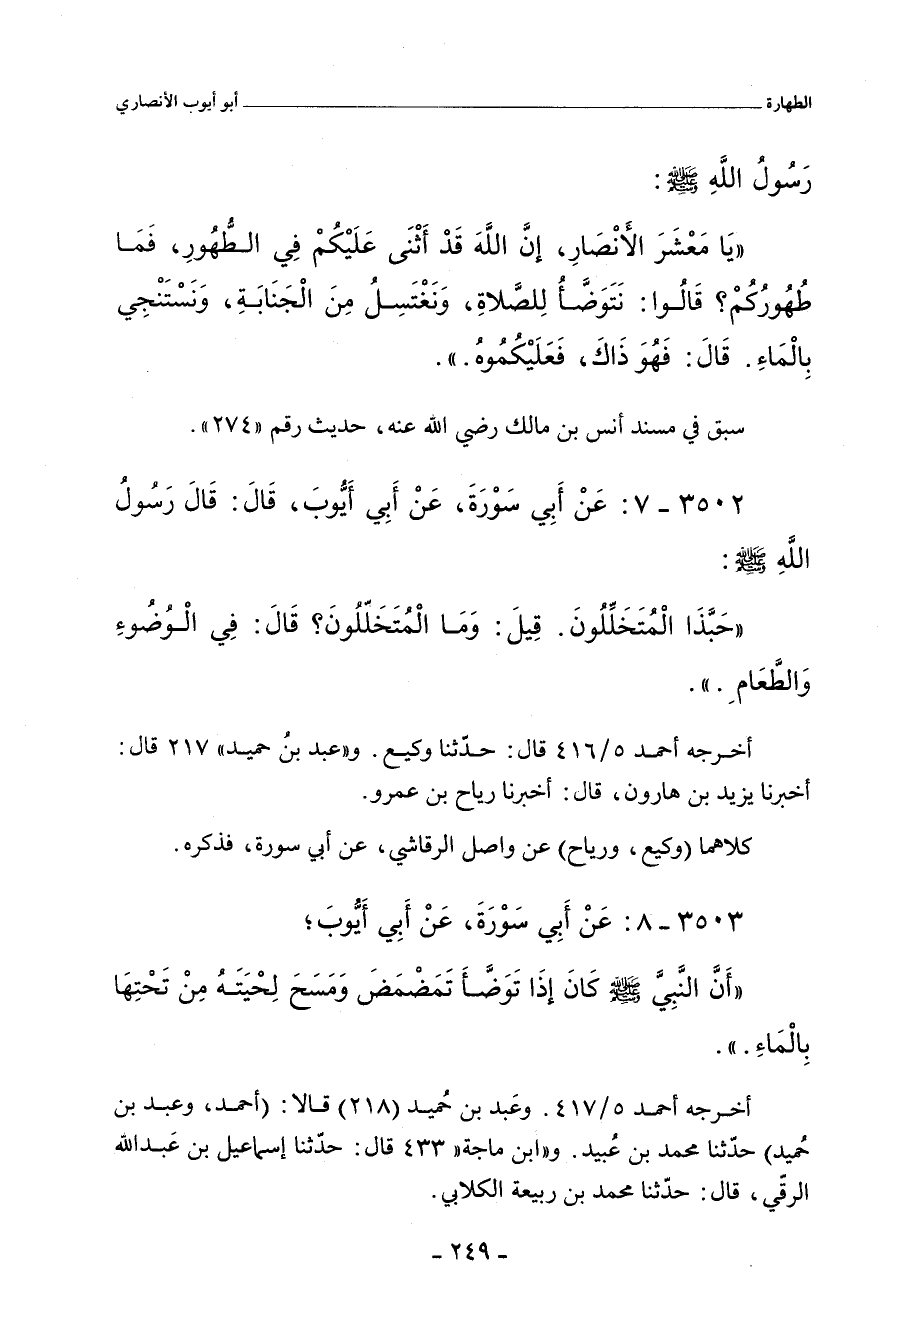 الطهارة ــــــــــ أبو أيوب الأنصاري
رَسُولُ اللَّهِ ﷺ :
«يَا مَعْشَرَ الأَنْصَارِ، إِنَّ اللَّهَ قَدْ أَثْنَى عَلَيْكُمْ فِي الطُّهُورِ، فَمَا
طُهُورُكُمْ؟ قَالُوا: نَتَوَضَّأُ لِلصَّلاةِ، وَنَغْتَسِلُ مِنَ الْجَنَابَةِ، وَنَسْتَنْجِي
بِالْمَاءِ. قَالَ: فَهُوَ ذَاكَ، فَعَلَيْكُمُوهُ.».
سبق في مسند أنس بن مالك رضي الله عنه، حديث رقم «٢٧٤».
٣٥٠٢ - ٧: عَنْ أَبِي سَوْرَةَ، عَنْ أَبِي أَيُّوبَ، قَالَ: قَالَ رَسُولُ
اللَّهِ ﷺ :
«حَبَّذَا الْمُتَخَلِّلُونَ. قِيلَ: وَمَا الْمُتَخَلِّلُونَ؟ قَالَ: فِي الْوُضُوءِ
وَالطَّعَامِ.».
أخرجه أحمد ٤١٦/٥ قال: حدّثنا وكيع. و«عبد بنُ حميد» ٢١٧ قال:
أخبرنا يزيد بن هارون، قال: أخبرنا رياح بن عمرو.
كلاهما (وكيع، ورياح) عن واصل الرقاشي، عن أبي سورة، فذكره.
٣٥٠٣ - ٨: عَنْ أَبِي سَوْرَةَ، عَنْ أَبِي أَيُّوبَ؛
«أَنَّ النَّبِيَّ ﷺ كَانَ إِذَا تَوَضَّأَ تَمَضْمَضَ وَمَسَحَ لِحْيَتَهُ مِنْ تَحْتِهَا
بِالْمَاءِ.».
أخرجه أحمد ٤١٧/٥. وعَبد بن حُميد (٢١٨) قالا: (أحمد، وعبد بن
حُميد) حدّثنا محمد بن عُبيد. و«ابن ماجة« ٤٣٣ قال: حدّثنا إسماعيل بن عَبدالله
الرقّي، قال: حدّثنا محمد بن ربيعة الكلابي.
- ٢٤٩ -